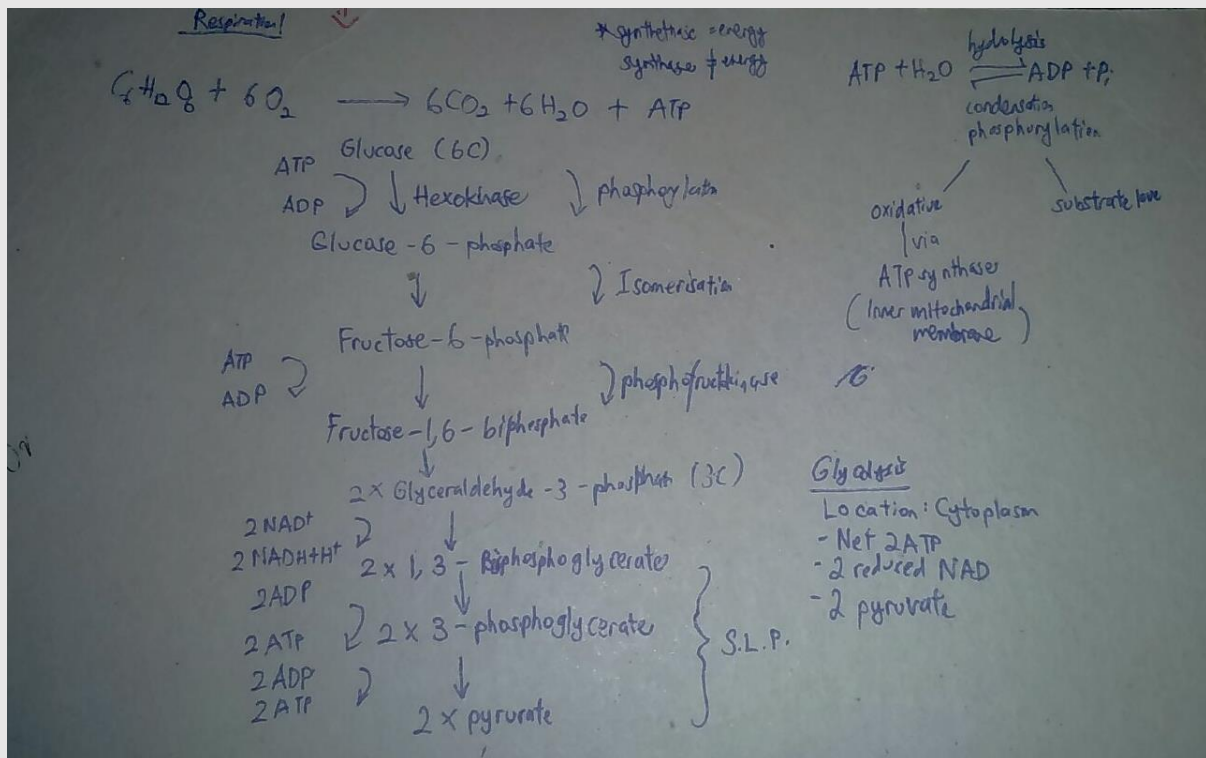 Respiration!
* synthethase = energy
synthase ≠ energy
ATP + H2O ⇌ ADP + Pi
hydrolysis
condensation
phosphorylation
oxidative
via
ATP synthase
(Inner mitochondrial
membrane)
+ 6O2 → 6CO2 + 6H2O + ATP
Glucose (6C)
ATP
ADP
Hexokinase
Glucose - 6 - phosphate
Isomerisation
Fructose - 6 - phosphate
ATP
ADP
Fructose - 1,6 - biphosphate
2 × Glyceraldehyde - 3 - (3C)
2 NAD+
2 NADH+H+
2 × 1, 3 -
2ADP
2 ATP
2 × 3 - phosphoglycerate
2 ADP
2 ATP
2 ×
S.L.P.
Glycolysis
Location : Cytoplasm
- Net 2ATP
- 2 reduced NAD
- 2 pyruvate